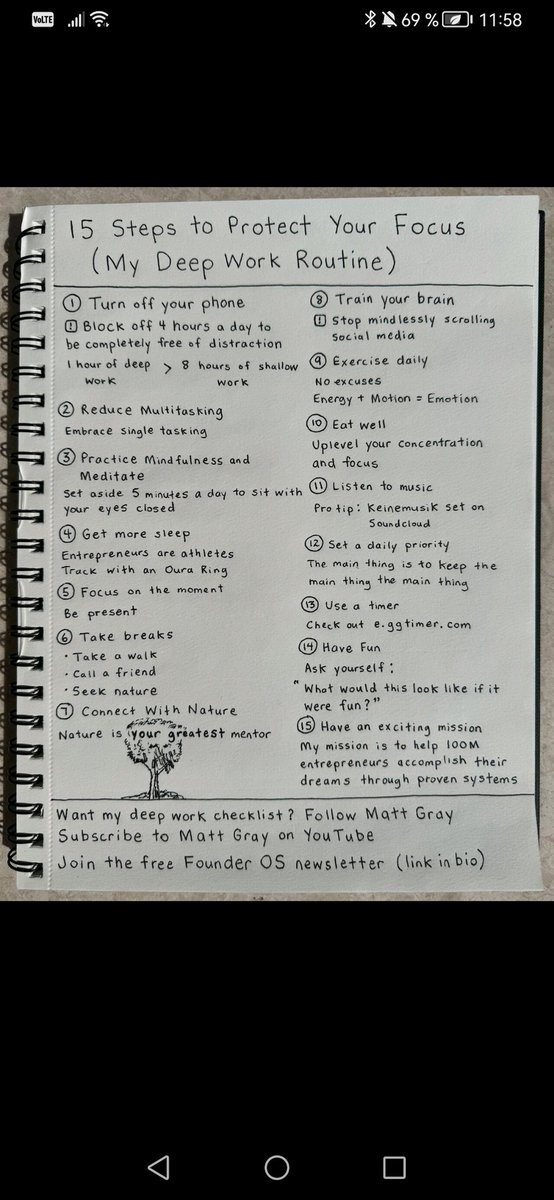 VoLTE
69 %
11:58
15 Steps to Protect Your Focus
(My Deep Work Routine)
1 Turn off your phone
! Block off 4 hours a day to
be completely free of distraction
1 hour of deep work > 8 hours of shallow work
2 Reduce Multitasking
Embrace single tasking
3 Practice Mindfulness and
Meditate
Set aside 5 minutes a day to sit with
your eyes closed
4 Get more sleep
Entrepreneurs are athletes
Track with an Oura Ring
5 Focus on the moment
Be present
6 Take breaks
• Take a walk
• Call a friend
• Seek nature
7 Connect With Nature
Nature is your greatest mentor
8 Train your brain
! Stop mindlessly scrolling
social media
9 Exercise daily
No excuses
Energy + Motion = Emotion
10 Eat well
Uplevel your concentration
and focus
11 Listen to music
Pro tip: Keinemusik set on
Soundcloud
12 Set a daily priority
The main thing is to keep the
main thing the main thing
13 Use a timer
Check out e.ggtimer.com
14 Have Fun
Ask yourself:
"What would this look like if it
were fun?"
15 Have an exciting mission
My mission is to help 100M
entrepreneurs accomplish their
dreams through proven systems
Want my deep work checklist? Follow Matt Gray
Subscribe to Matt Gray on YouTube
Join the free Founder OS newsletter (link in bio)